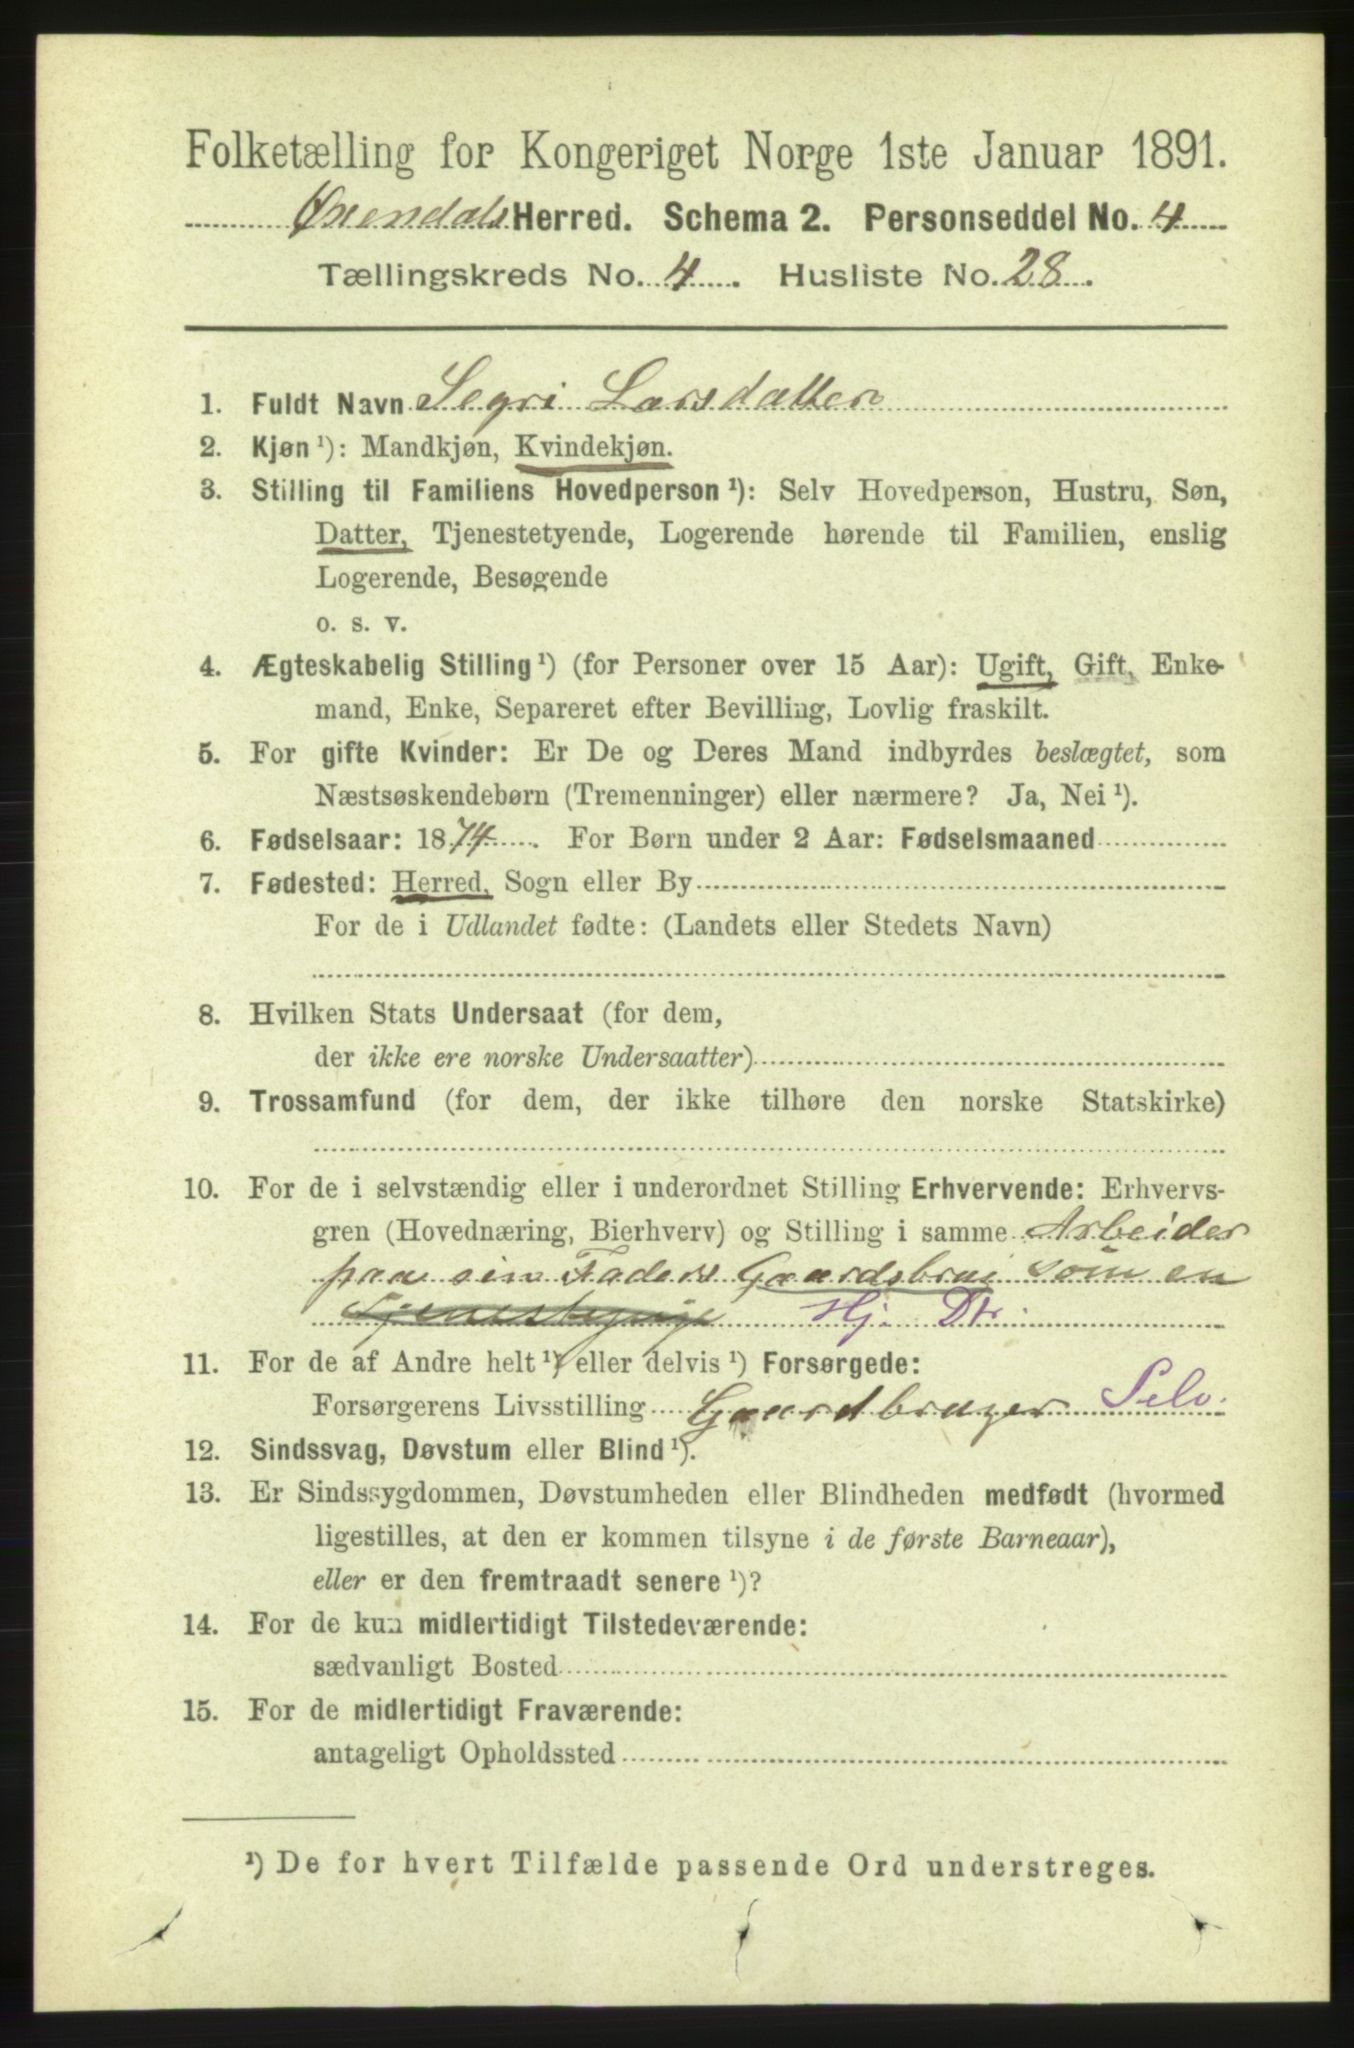 Folketælling for Kongeriget Norge 1ste Januar 1891.
Øxendals Herred. Schema 2. Personseddel No. 4
Tællingskreds No. 4. Husliste No. 28.
1. Fuldt Navn Segri Larsdatter
2. Kjøn ¹): Mandkjøn, Kvindekjøn.
3. Stilling til Familiens Hovedperson ¹): Selv Hovedperson, Hustru, Søn,
Datter, Tjenestetyende, Logerende hørende til Familien, enslig
Logerende, Besøgende
o. s. v.
4. Ægteskabelig Stilling ¹) (for Personer over 15 Aar): Ugift, Gift, Enke-
mand, Enke, Separeret efter Bevilling, Lovlig fraskilt.
5. For gifte Kvinder: Er De og Deres Mand indbyrdes beslægtet, som
Næstsøskendebørn (Tremenninger) eller nærmere? Ja, Nei ¹).
6. Fødselsaar: 1874. For Børn under 2 Aar: Fødselsmaaned
7. Fødested: Herred, Sogn eller By
For de i Udlandet fødte: (Landets eller Stedets Navn)
8. Hvilken Stats Undersaat (for dem,
der ikke ere norske Undersaatter)
9. Trossamfund (for dem, der ikke tilhøre den norske Statskirke)
10. For de i selvstændig eller i underordnet Stilling Erhvervende: Erhvervs-
gren (Hovednæring, Bierhverv) og Stilling i samme Arbeider
paa sin Faders Gaardsbrug som en
Tjenestepige Hj. Dtr.
11. For de af Andre helt ¹) eller delvis ¹) Forsørgede:
Forsørgerens Livsstilling Gaardbruger Selv.
12. Sindssvag, Døvstum eller Blind ¹).
13. Er Sindssygdommen, Døvstumheden eller Blindheden medfødt (hvormed
ligestilles, at den er kommen tilsyne i de første Barneaar),
eller er den fremtraadt senere ¹)?
14. For de kun midlertidigt Tilstedeværende:
sædvanligt Bosted
15. For de midlertidigt Fraværende:
antageligt Opholdssted
¹) De for hvert Tilfælde passende Ord understreges.